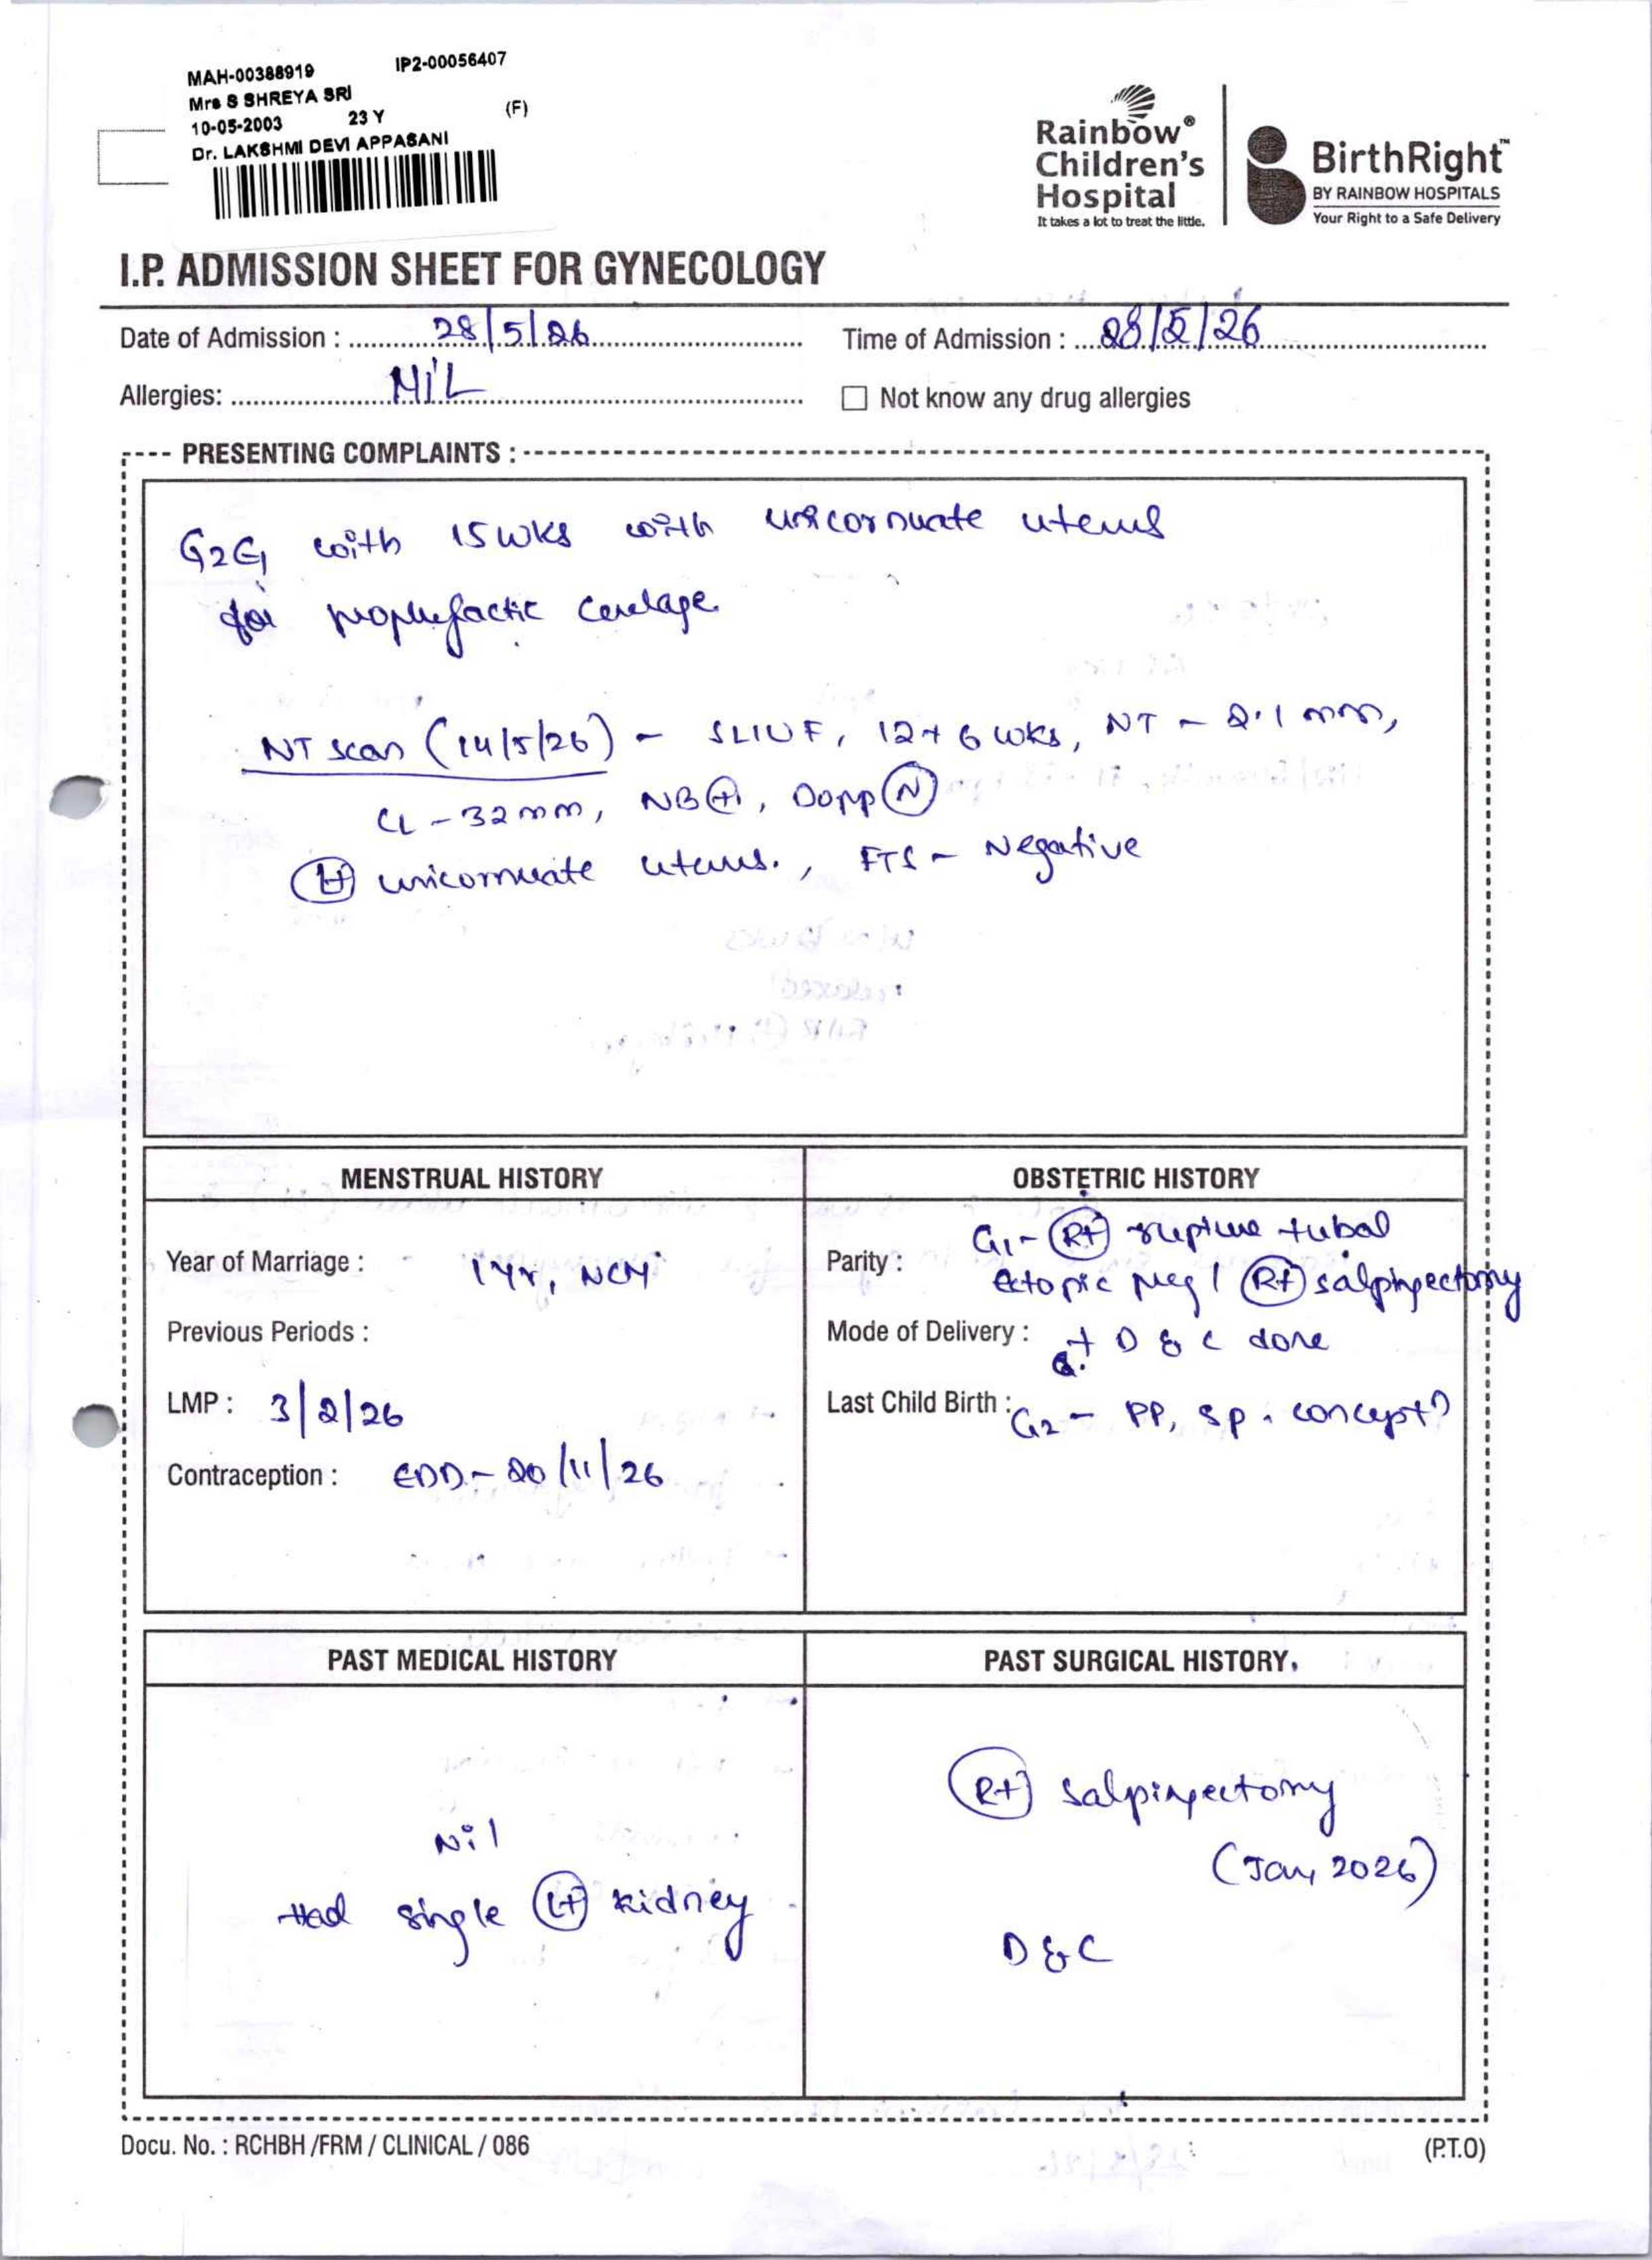 MAH-00388919 IP2-00056407
Mrs S SHREYA SRI
10-05-2003 23 Y (F)
Dr. LAKSHMI DEVI APPASANI
Rainbow®
Children's
Hospital
It takes a lot to treat the little.
BirthRight™
BY RAINBOW HOSPITALS
Your Right to a Safe Delivery
I.P. ADMISSION SHEET FOR GYNECOLOGY
Date of Admission : 28/5/26 Time of Admission : 28/5/26
Allergies: NIL ☐ Not know any drug allergies
PRESENTING COMPLAINTS :
G2G1 with 15 wks with unicornuate uterus
for prophylactic cerclage.
NT scan (14/5/26) - SLIUF, 12+6 wks, NT - 2.1 mm,
CL - 32 mm, NB (+), Dopp (N)
(Lt) unicornuate uterus., FTS - Negative
MENSTRUAL HISTORY
Year of Marriage : 1 yr, NCM
Previous Periods :
LMP : 3/2/26
Contraception : EDD - 20/11/26
OBSTETRIC HISTORY
Parity : G1 - (Rt) rupture tubal
Ectopic preg / (Rt) salpingectomy
Mode of Delivery : + D & C done
Last Child Birth : G2 - PP, sp. concept
PAST MEDICAL HISTORY
Nil
Had single (Lt) kidney
PAST SURGICAL HISTORY
(Rt) salpingectomy
(Jan, 2026)
D & C
Docu. No. : RCHBH /FRM / CLINICAL / 086 (P.T.O)